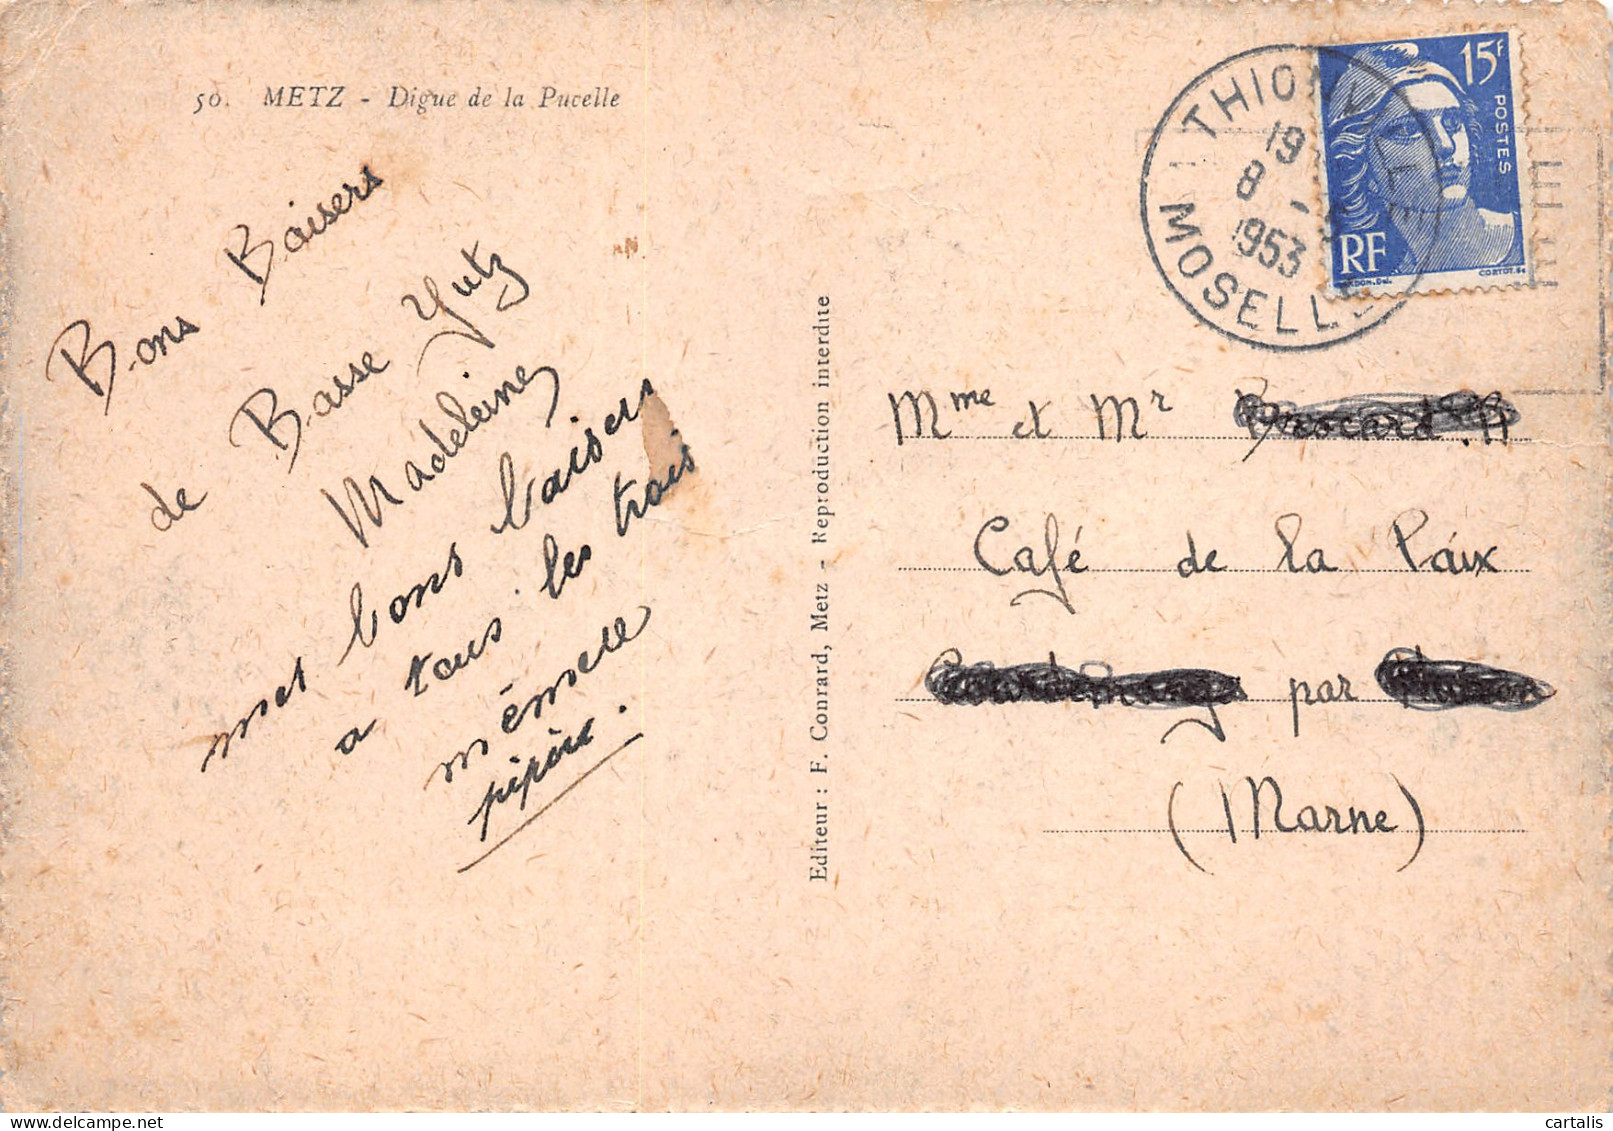 50. METZ - Digue de la Pucelle
Bons Baisers
de Basse Yutz
Madeleine
mes bons baisers
a tous les trois
mémere
pipère.
Editeur : F. Conrard, Metz - Reproduction interdite
THIONVILLE
19
8 -
1953
MOSELLE
15F
POSTES
RF
Mme et Mr
Café de la Paix
par
(Marne)
cartalis